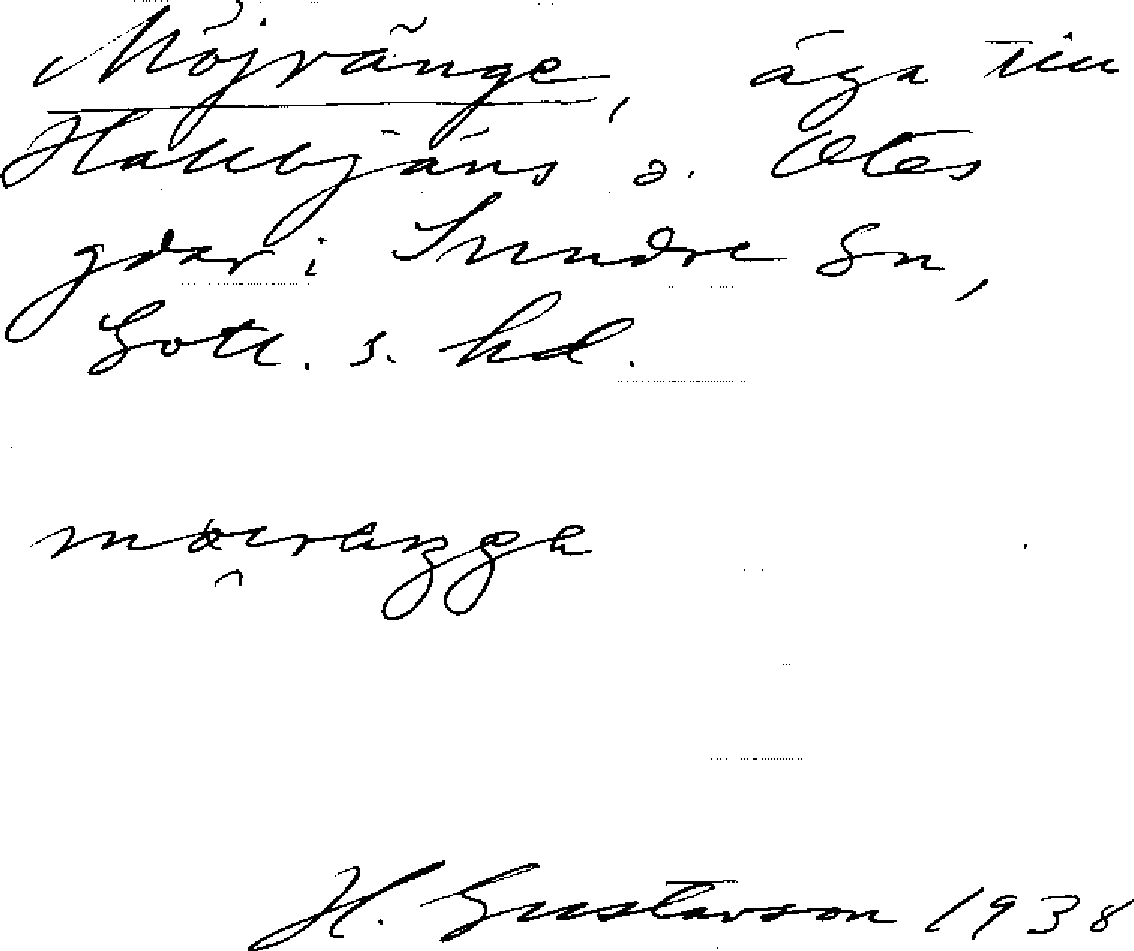 Möjvänge, äga till
Hallbjäns o. Otes
gdar i Sundre Sn,
Gotl. s. hd.
H. Gustavson 1938